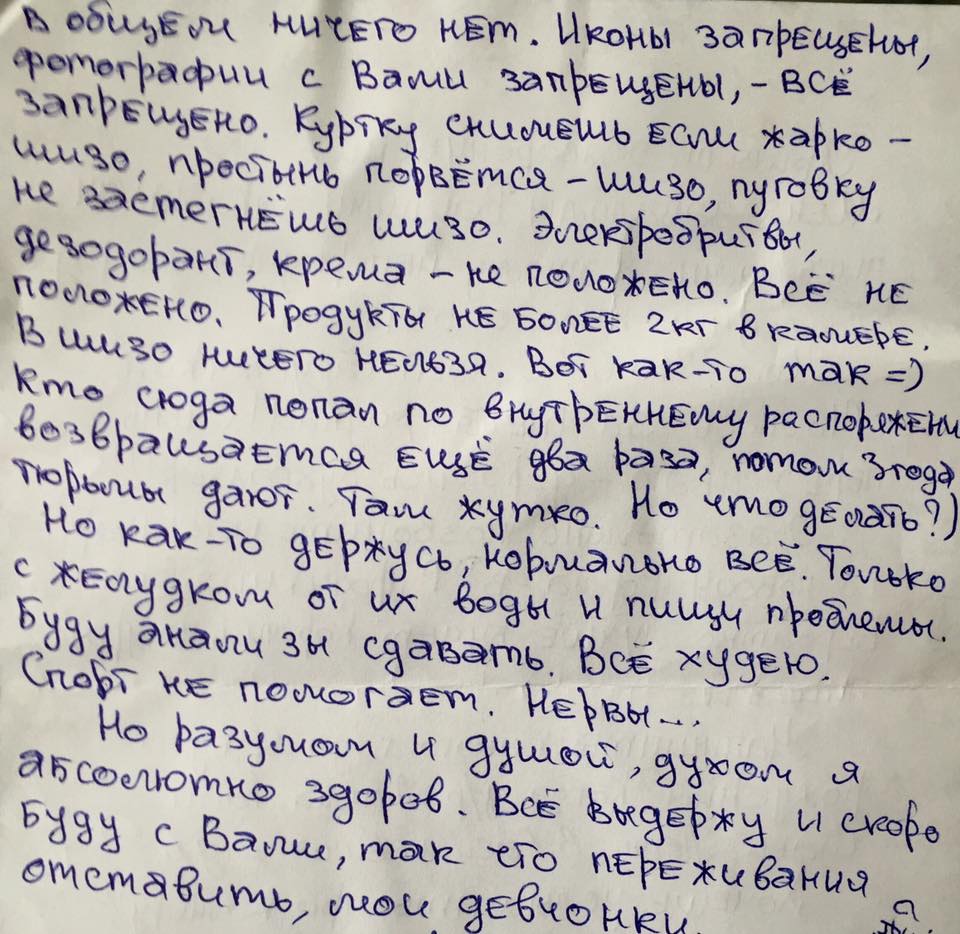 В общем ничего нет. Иконы запрещены,
фотографии с Вами запрещены, - всё
запрещено. Куртку снимешь если жарко -
шизо, простынь порвётся - шизо, пуговку
не застегнёшь шизо. Электробритвы,
дезодорант, крема - не положено. Всё не
положено. Продукты не более 2кг в камере.
В шизо ничего нельзя. Вот как-то так =)
Кто сюда попал по внутреннему распоряжени
возвращается ещё два раза, потом 3 года
тюрьмы дают. Там жутко. Но что делать?)
Но как-то держусь, нормально всё. Только
с желудком от их воды и пищи проблемы.
Буду анализы сдавать. Всё худею.
Спорт не помогает. Нервы...
Но разумом и душой, духом я
абсолютно здоров. Всё выдержу и скоро
буду с Вами, так что переживания
отставить, мои девчонки.